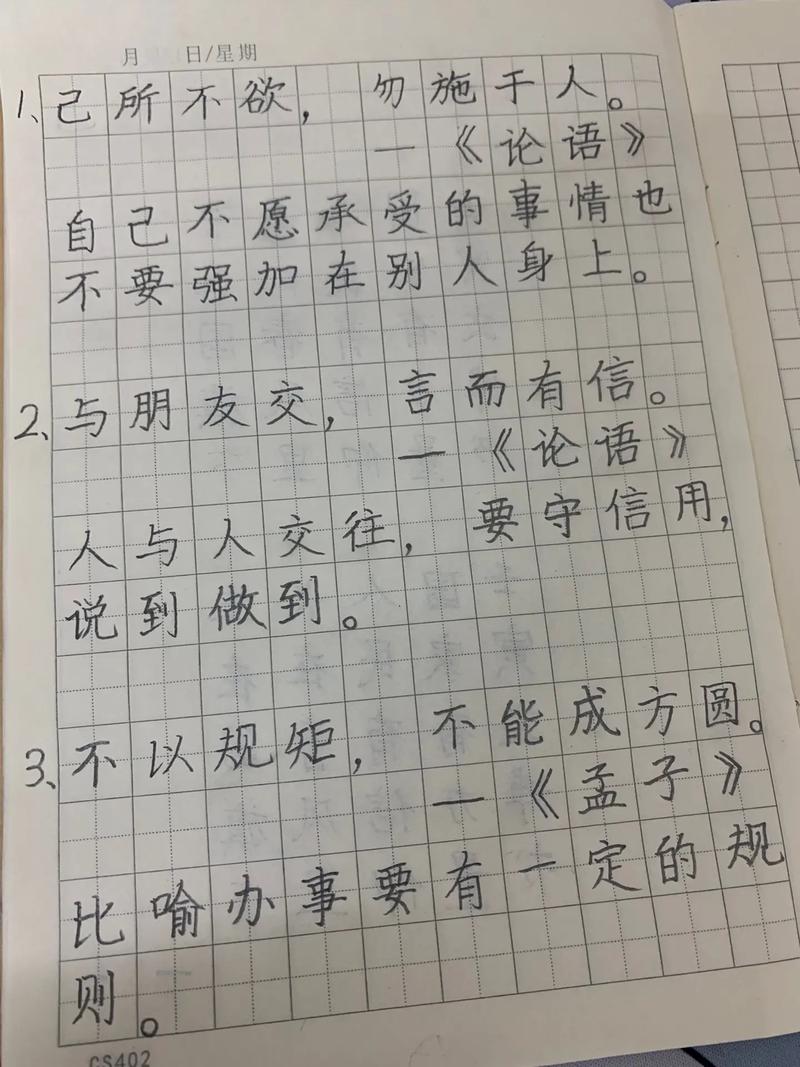 月 日/星期
1、己所不欲，勿施于人。
—《论语》
自己不愿承受的事情也
不要强加在别人身上。
2、与朋友交，言而有信。
—《论语》
人与人交往，要守信用，
说到做到。
3、不以规矩，不能成方圆。
—《孟子》
比喻办事要有一定的规
则。
CS402